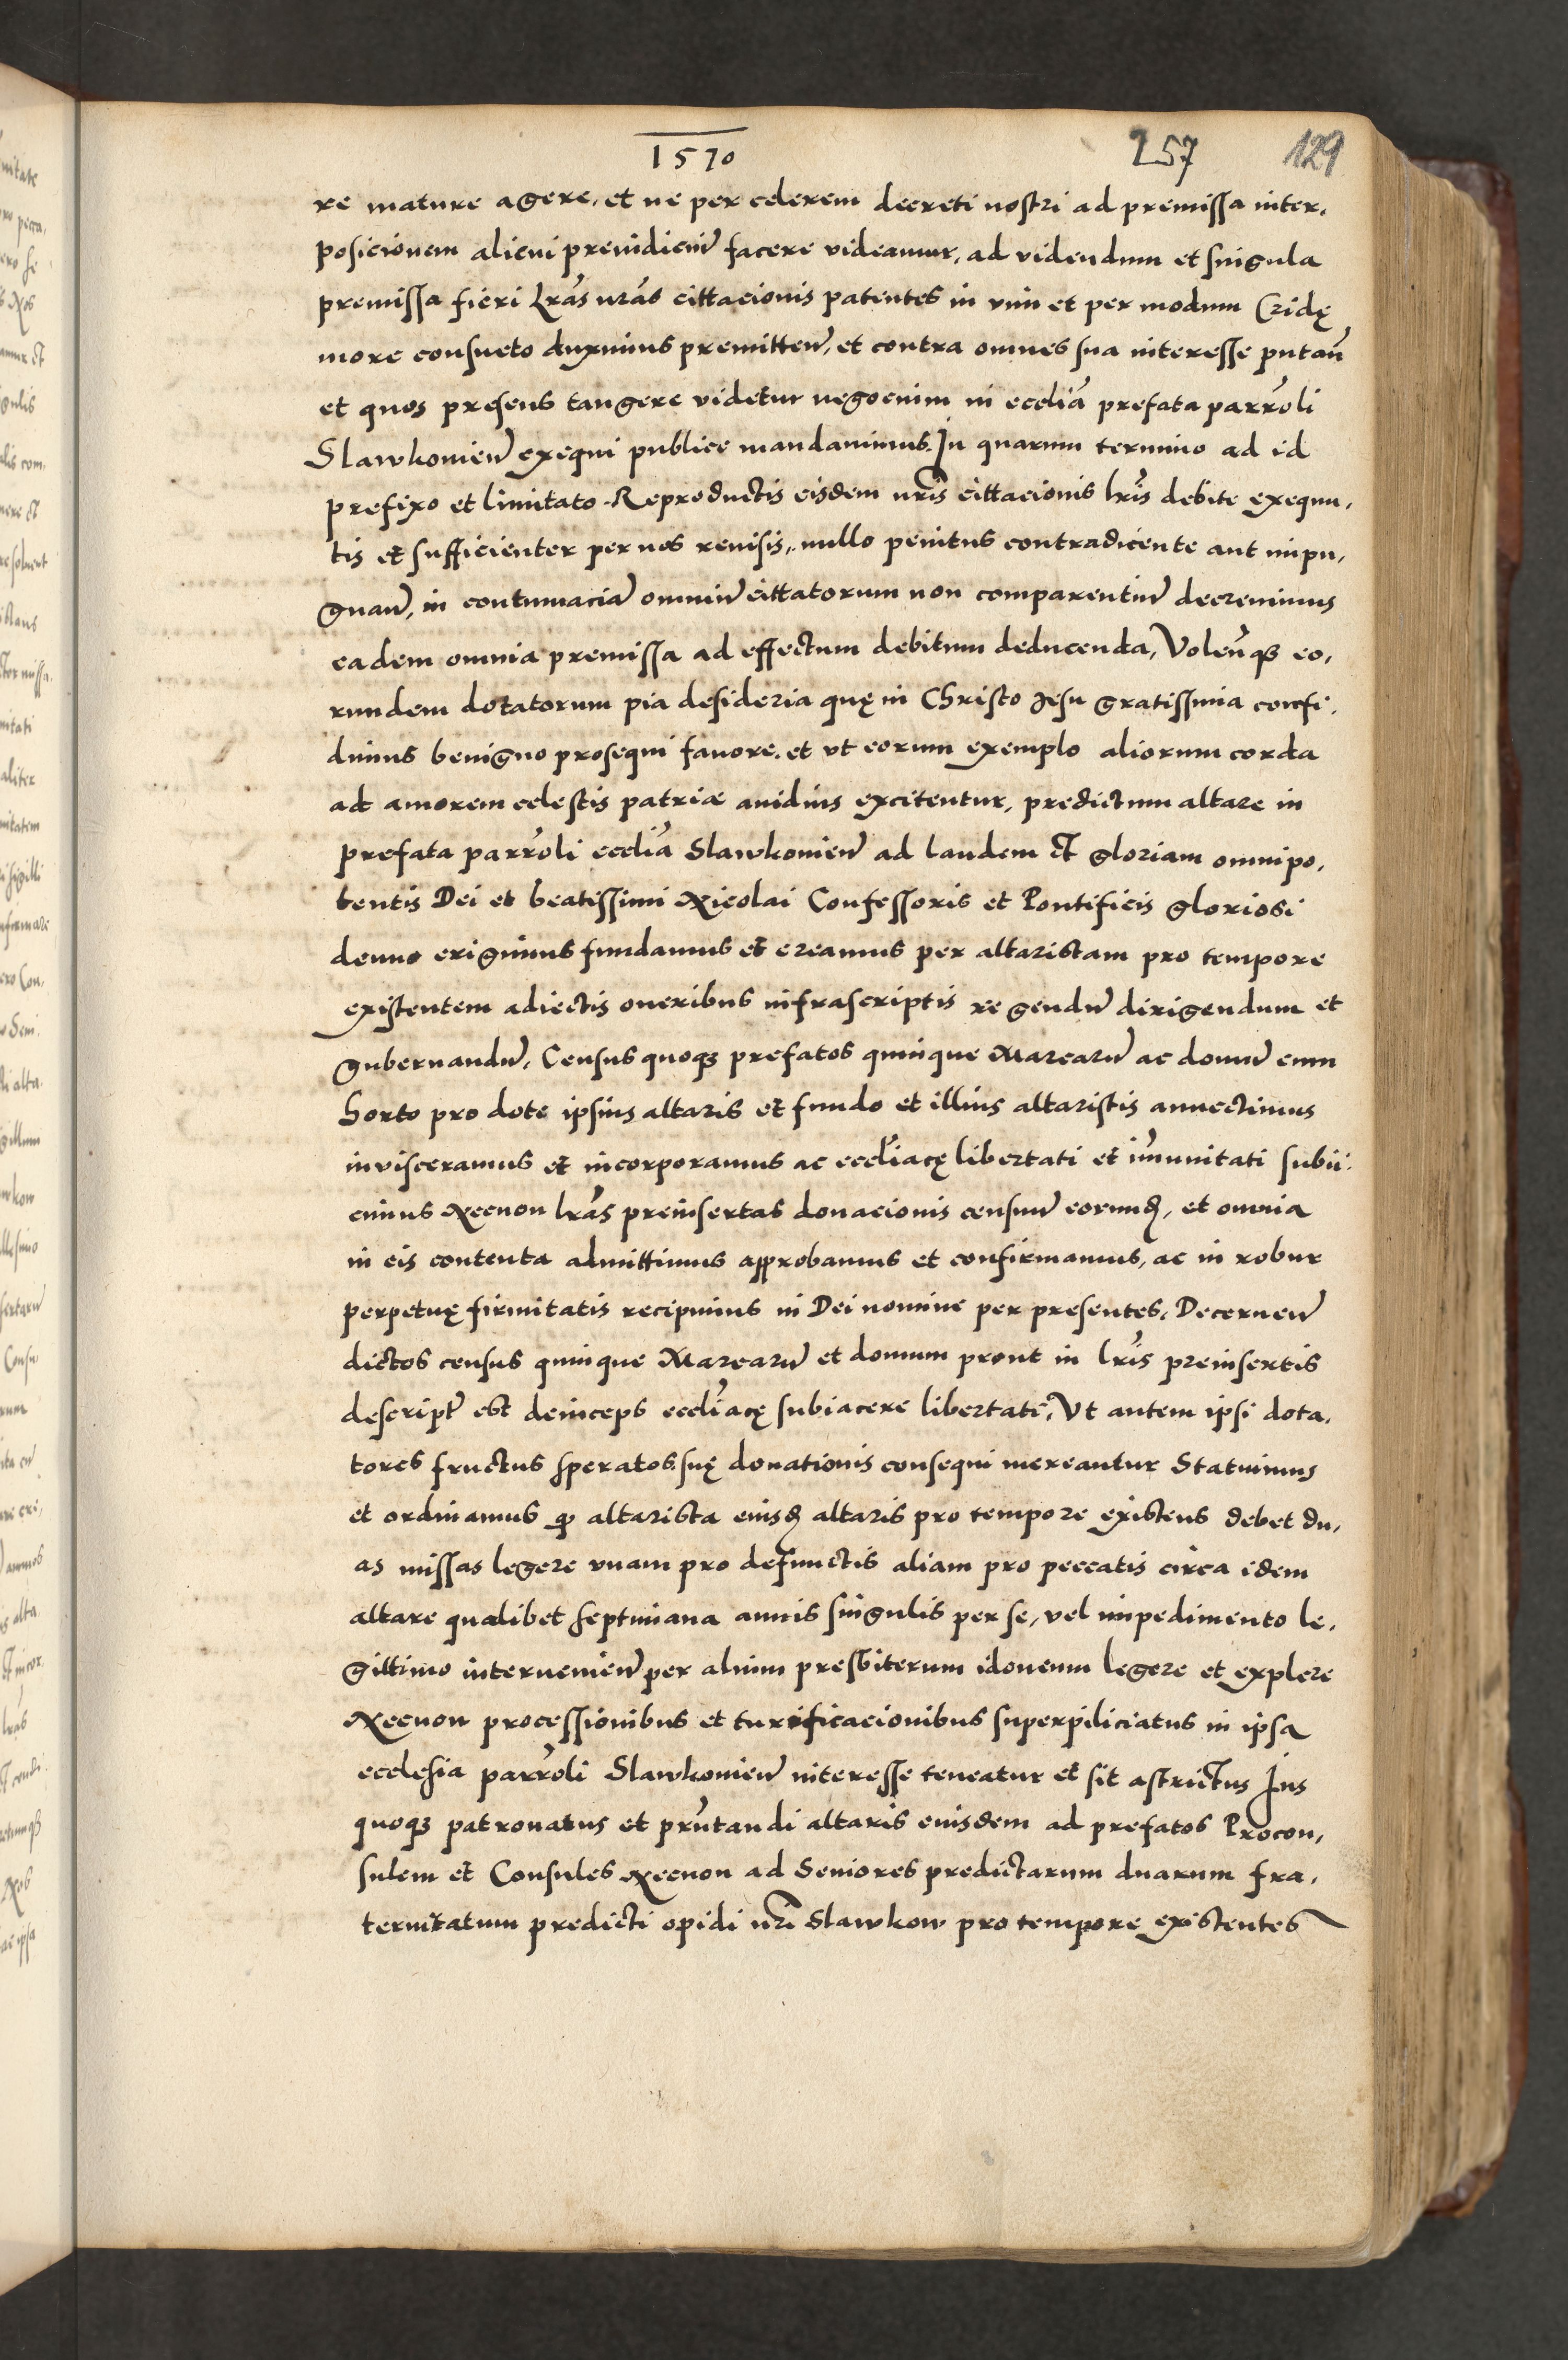 1570
257 129
re mature agere, et ne per celerem decreti nostri ad premissa inter,
posicionem alicui preiudiciu facere videamur, ad videndum et singula
premissa fieri Lras nras cittacionis patentes in vim et per modum Cridę
more consueto duximus premitten, et contra omnes sua interesse putan
et quos presens tangere videtur negocium in ecclia prefata parroli
Slawkowien exequi publice mandauimus. In quarum termino ad id
prefixo et limitato. Reproductis eisdem nris cittacionis lris debite exequu,
tis et sufficienter per nos reuisis, nullo penitus contradicente aut impu,
gnan, in contumacia omniu cittatorum non comparentiu decreuimus
eadem omnia premissa ad effectum debitum deducenda, Volenqȝ eo,
rundem dotatorum pia desideria quę in Christo Jesu gratissima confi,
dimus benigno prosequi fauore, et vt eorum exemplo aliorum corda
ad amorem celestis patriæ auidius excitentur, predictum altare in
prefata parroli ecclia Slawkowien ad laudem et gloriam omnipo,
tentis Dei et beatissimi Nicolai Confessoris et Pontificis gloriosi
denuo erigimus fundamus et creamus per altaristam pro tempore
existentem adiectis oneribus infrascriptis regendu dirigendum et
gubernandu, Census quoqȝ prefatos quinque Marcaru ac domu cum
horto pro dote ipsius altaris et fundo et illius altaristis annectimus
invisceramus et incorporamus ac eccliacę libertati et imunitati subii,
cimus Necnon lras preinsertas donacionis censuu eorund, et omnia
in eis contenta admittimus approbamus et confirmamus, ac in robur
perpetuę firmitatis recipimus in Dei nomine per presentes, Decernen
dictos census quinque Marcaru et domum prout in lris preinsertis
descript est deinceps eccliacę subiacere libertati, Vt autem ipsi dota,
tores fructus speratos suę donationis consequi mereantur Statuimus
et ordinamus ꝙ altarista eiusd altaris pro tempore existens debet du,
as missas legere vnam pro defunctis aliam pro peccatis circa idem
altare qualibet septimana annis singulis per se, vel impedimento le,
gittimo interuenien per alium presbiterum idoneum legere et explere
Necnon processionibus et turificacionibus superpiliciatus in ipsa
ecclesia parroli Slawkowien interesse teneatur et sit astrictus Ius
quoqȝ patronatus et prntandi altaris eiusdem ad prefatos Procon,
sulem et Consules Necnon ad Seniores predictarum duarum fra,
ternitatum predicti opidi nri Slawkow pro tempore existentes